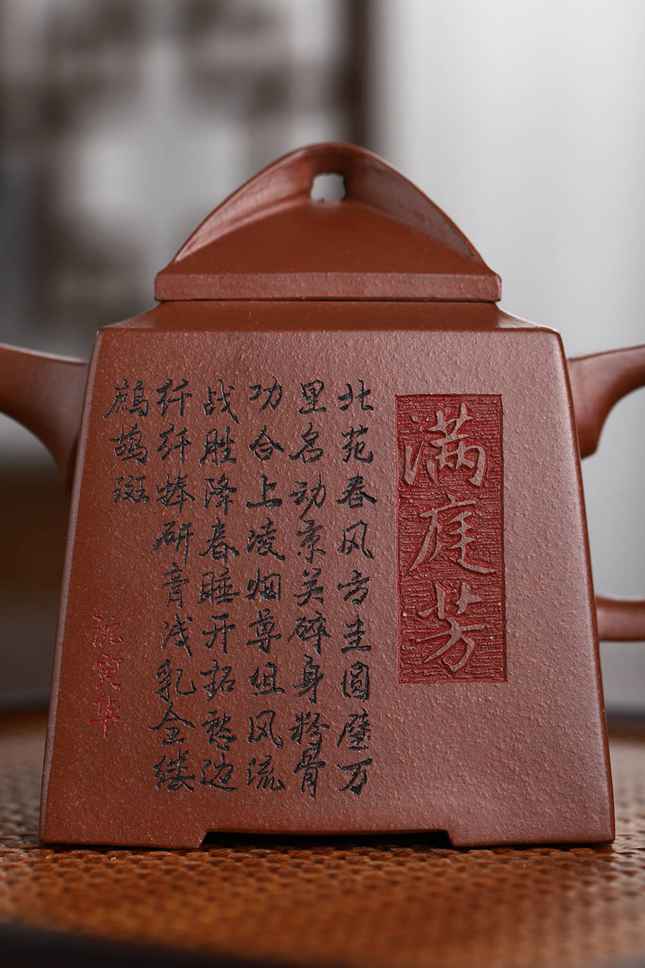 满庭芳
北苑春风方圭圆璧万
里名动京关碎身粉骨
功合上凌烟尊俎风流
战胜降春睡开拓愁边
纤纤捧研膏浅乳金缕
鹧鸪斑